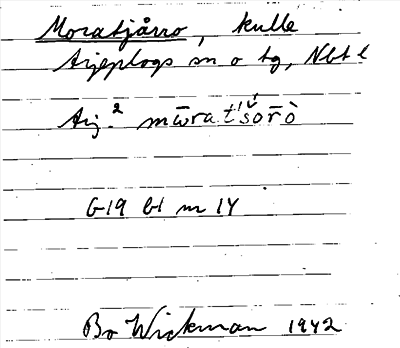 Moratjårro, kulle
Arjeplogs sn o tg, Nbt l
Arj.² mω̄rat́šor̄ò
G19 bl nr 14
Bo Wickman 1942